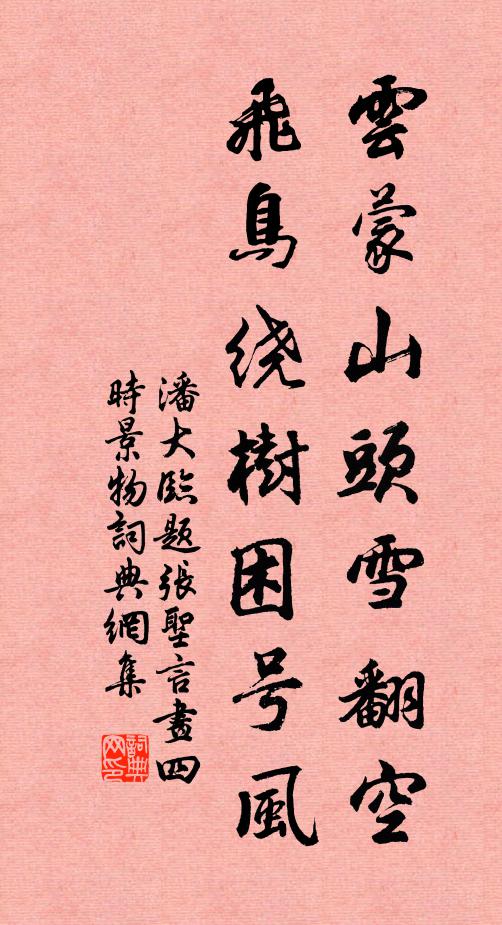 雲蒙山頭雪翻空
飛鳥绕樹困号風
潘大臨題張聖言畫四
時景物詞典網集
詞典网印